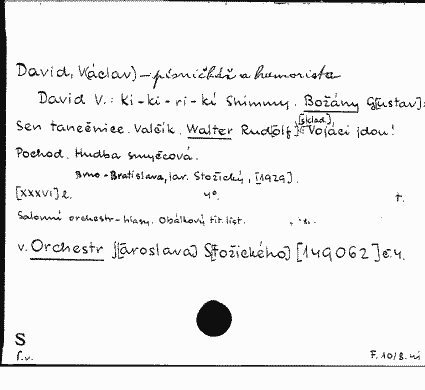 David, V[áclav] - písničkář a humorista
David V.: Ki-ki-ri-kí Shimmy. Božány G[ustav]:
Sen tanečnice. Valčík. Walter Rud[olf] [sklad.]: Vojáci jdou!
Pochod. Hudba smyčcová.
Brno-Bratislava, Jar. Stožický, [1929].
[XXXVI] l. 4°. t.
Salonní orchestr-hlasy. Obálkový tit. list.
v. Orchestr J[aroslava] S[tožického] [149062] č.4.
S
F. 10/8.